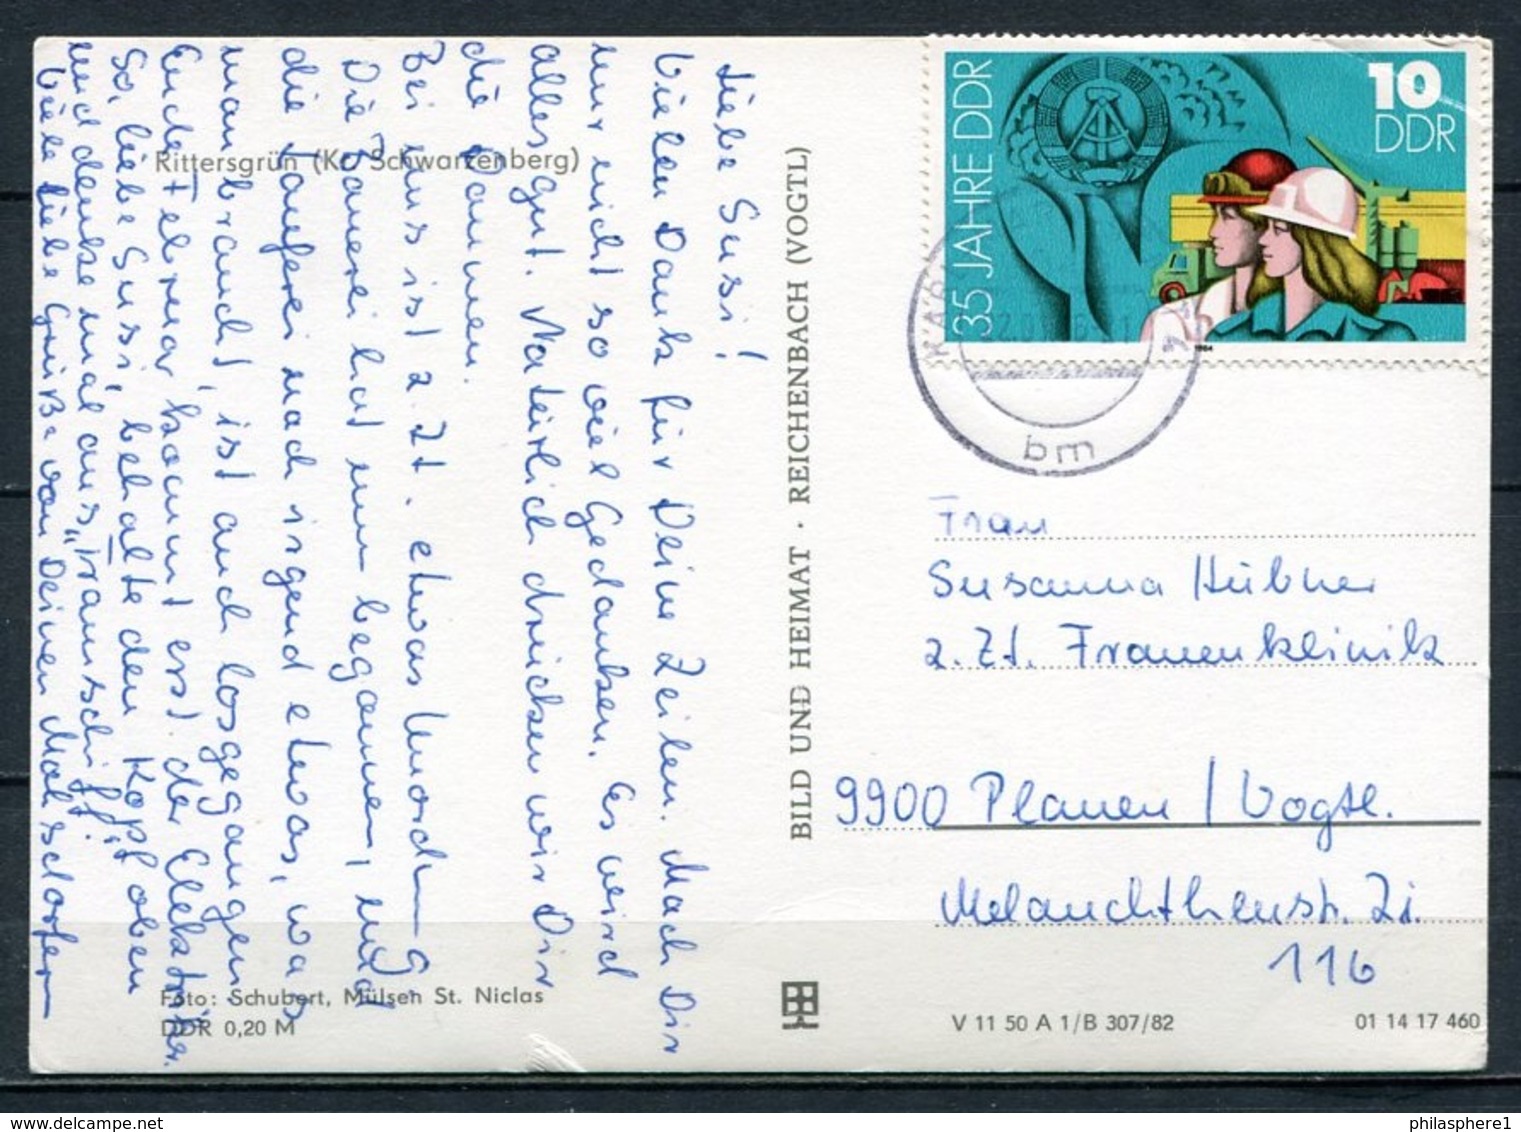 Liebe Susi!
Vielen Dank für Deine Zeilen. Mach Dir
nur nicht so viel Gedanken. Es wird
alles gut. Natürlich drücken wir Dir
die Daumen.
Bei uns ist z. Zt. etwas
Die Bauerei hat nun begonnen, und
die Lauferei nach irgend etwas, was
man braucht, ist auch losgegangen
Ende Februar kommt erst der Elektriker.
So, liebe Susi, behalte den Kopf oben
und denke mal aus,
Viele liebe Grüße von Deinen
Rittersgrün (Kr. Schwarzenberg)
Foto: Schubert, Mülsen St. Niclas
DDR 0,20 M
BILD UND HEIMAT · REICHENBACH (VOGTL)
35 JAHRE DDR
10
DDR
1984
bm
Frau
Susanna Hübner
z. Zt. Frauenklinik
9900 Plauen / Vogtl.
Melanchthonstr. Zi.
116
V 11 50 A 1/B 307/82
01 14 17 460
philasphere1
www.delcampe.net